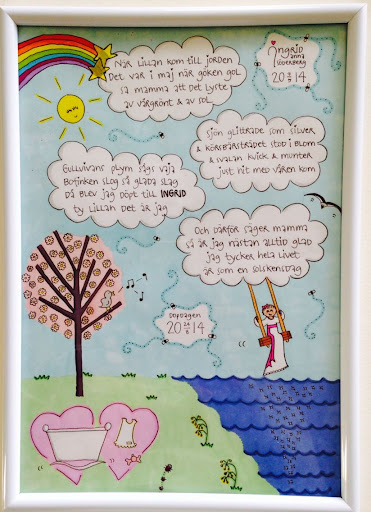 När Lillan kom till jorden
Det var i maj när göken gol
sa mamma att det lyste
av vårgrönt & av sol
Ingrid
Anna
Söderberg
20 14
Sjön glittrade som silver
& körsbärsträdet stod i blom
& svalan kvick & munter
just hit med våren kom
Gullvivans plym sågs vaja
Bofinken slog så glada slag
då blev jag döpt till INGRID
ty Lillan det är jag
Och därför säger mamma
så är jag nästan alltid glad
jag tycker hela livet
är som en solskensdag
Dopdagen
20 14